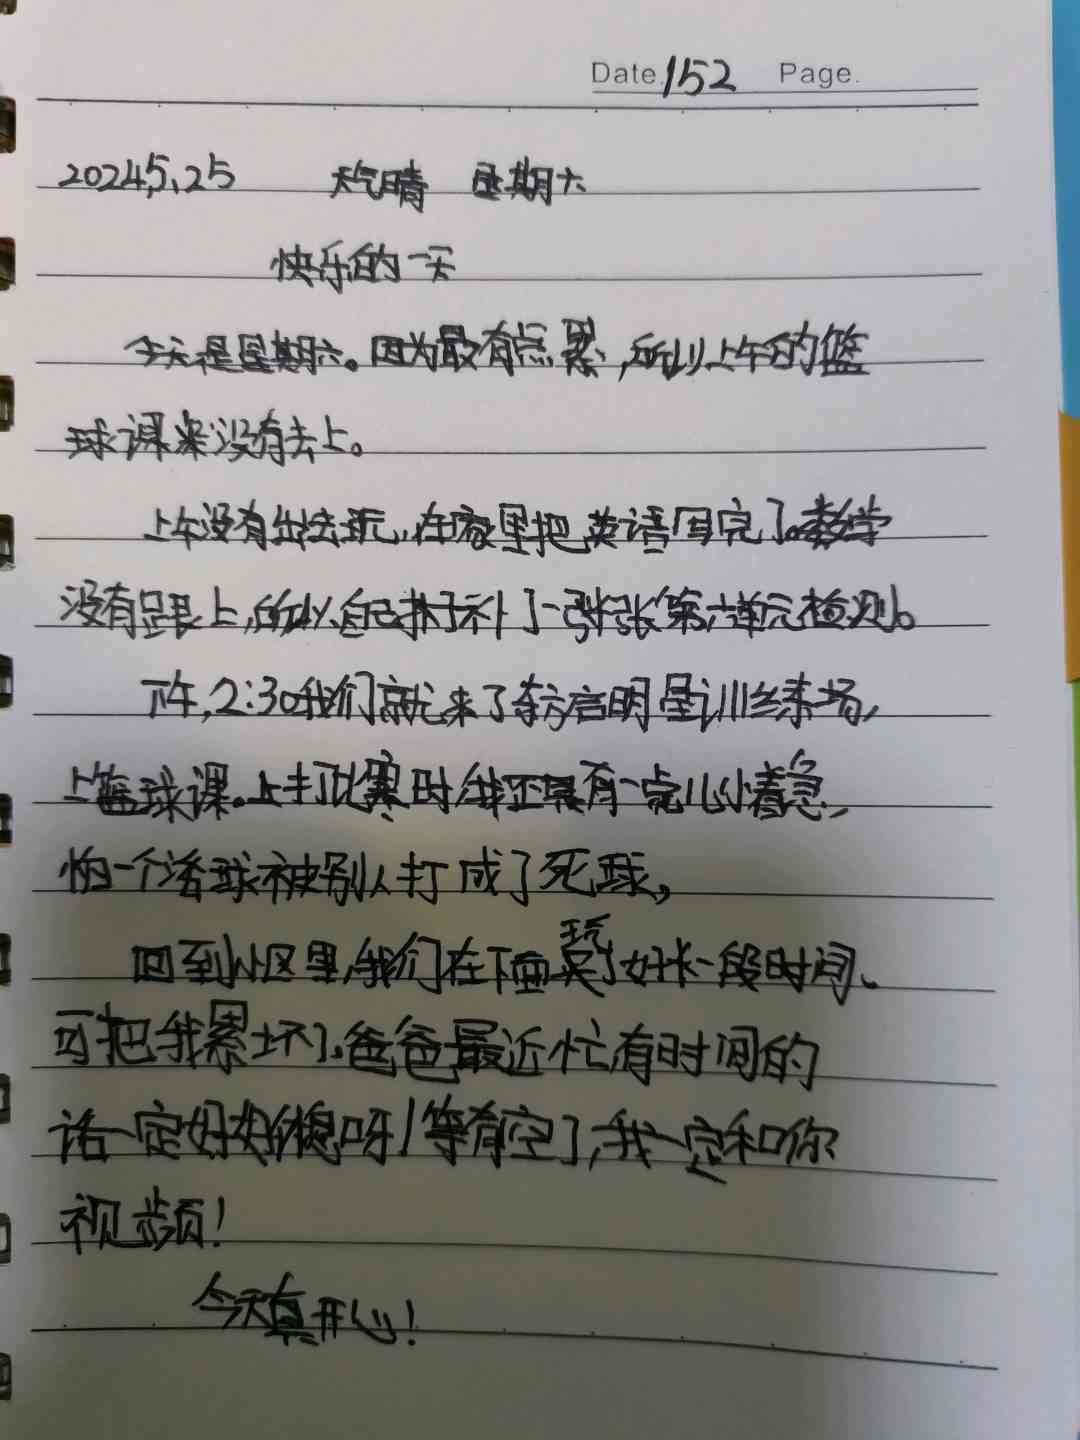 Date 152 Page.
2024,5,25 天气晴 星期六
快乐的一天
今天是星期六。因为最有点累,所以上午的篮
球课来没有去上。
上午没有出去玩,在家里把英语写完了。数学
没有跟上,所以自己补了一张张第六单元检测。
下午,2:30我们就来了东方启明星训练场,
上篮球课。上打比赛时我还是有一点儿小着急,
怕一个活球被别人打成了死球。
回到小区里,我们在下面玩了好长一段时间、
可把我累坏了。爸爸最近忙有时间的
话一定好好休息呀!等有空了,我一定和你
视频!
今天真开心!